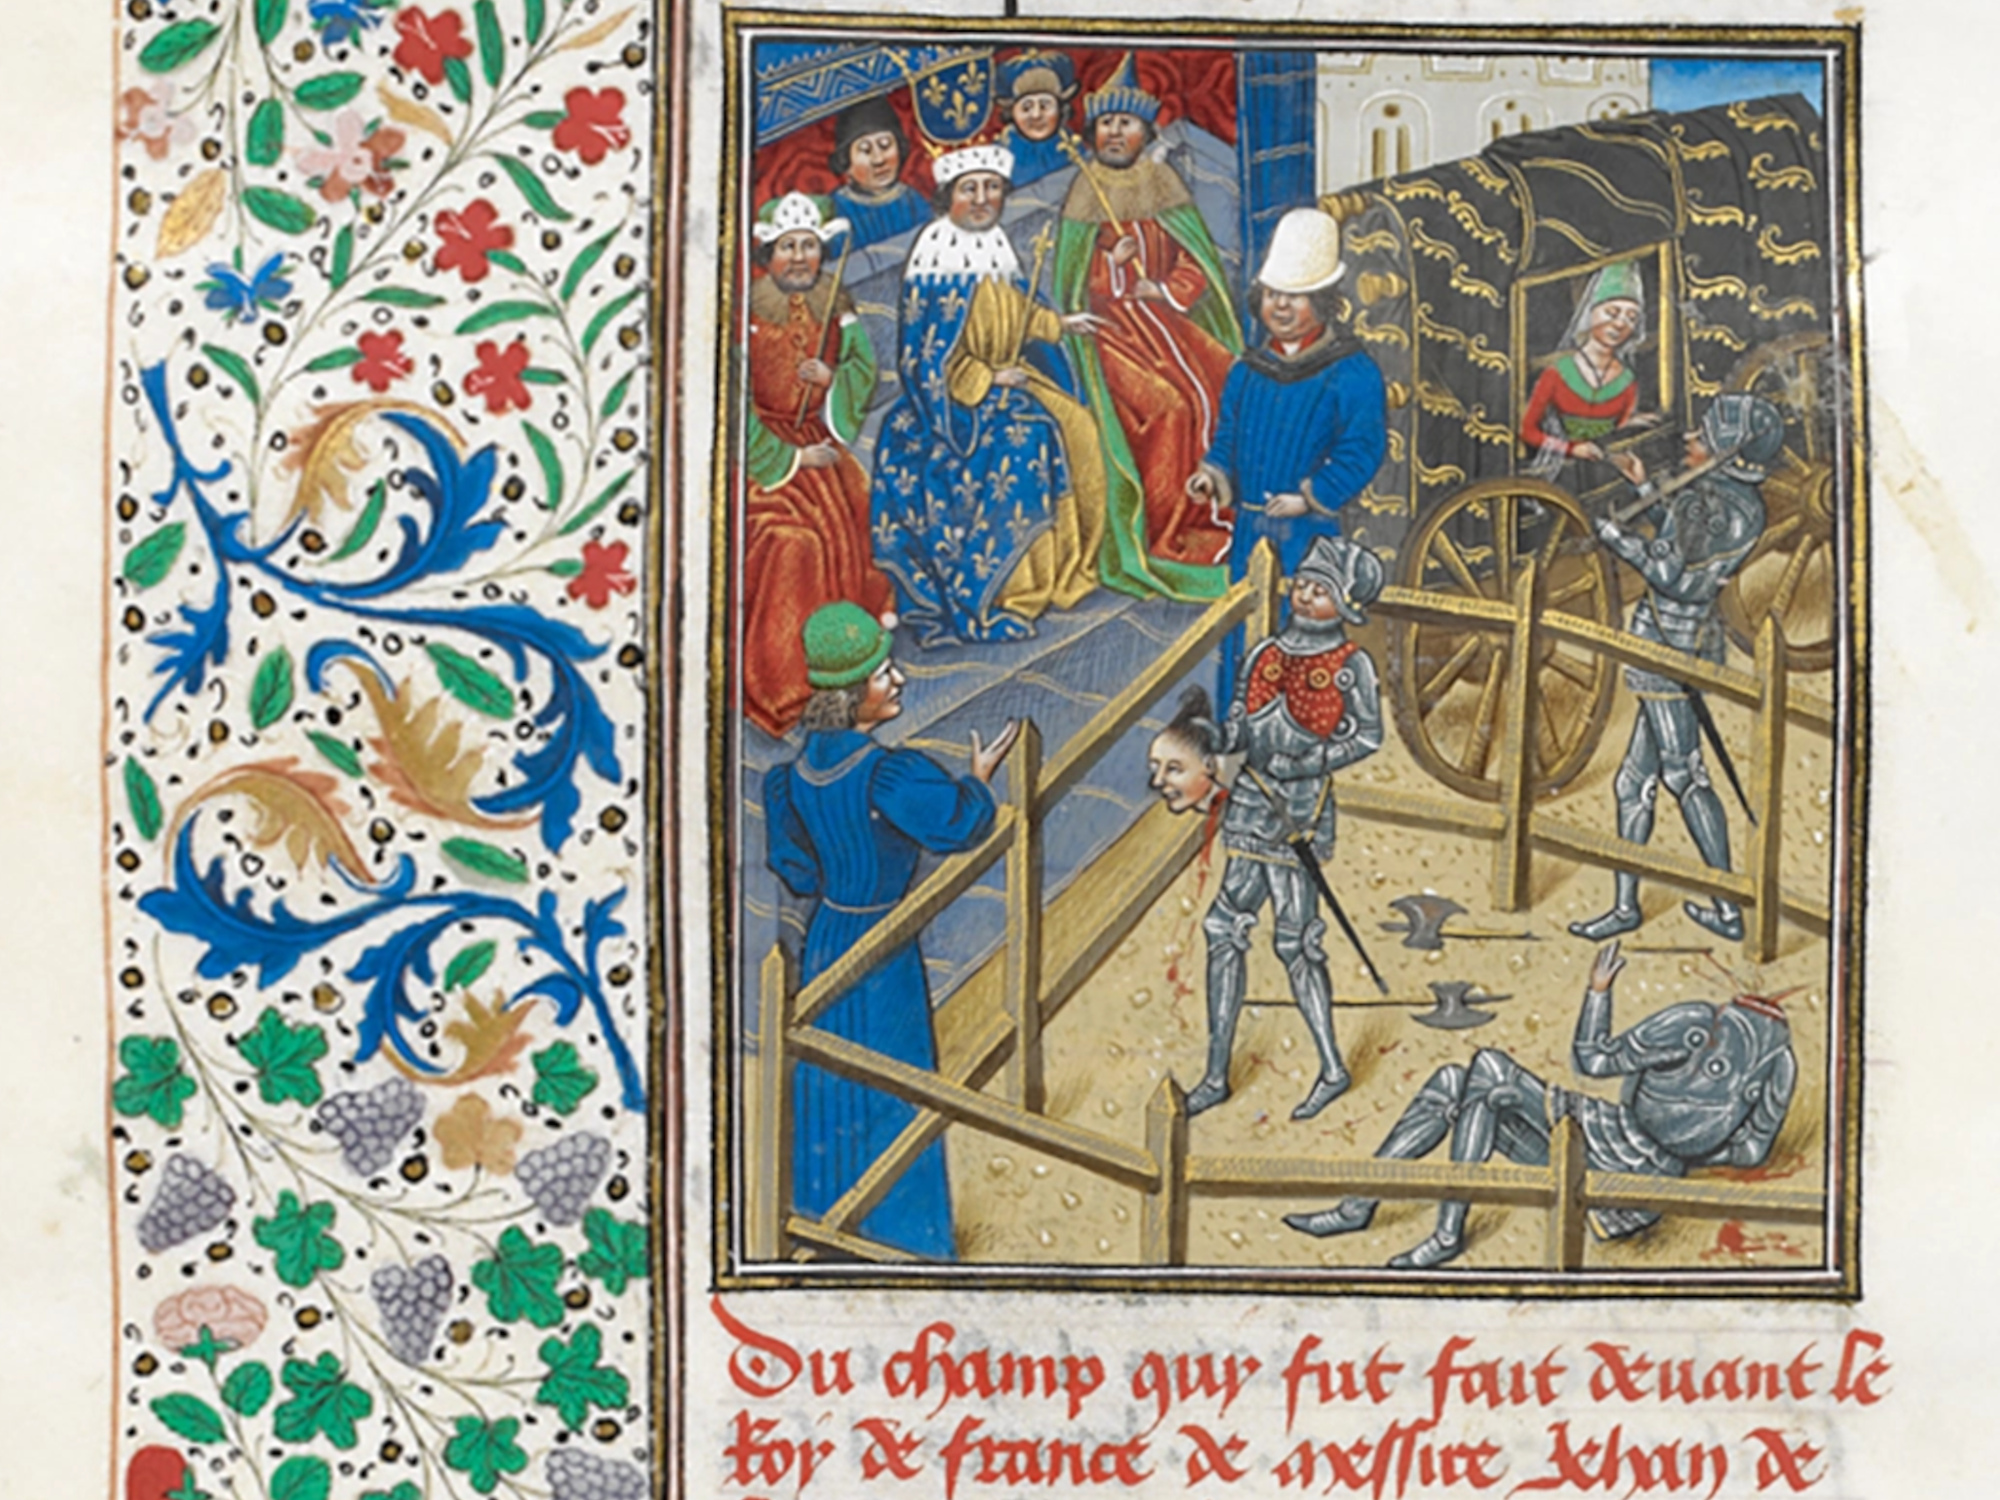 Du champ quy fut fait deuant le
Roy de france de messire Jehan de